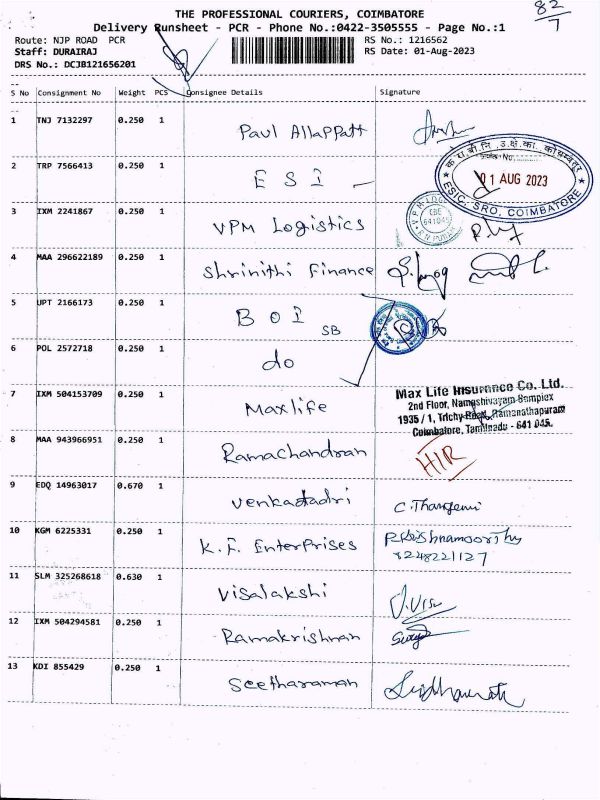 THE PROFESSIONAL COURIERS, COIMBATORE
82/7
Delivery Runsheet - PCR - Phone No.:0422-3505555 - Page No.:1
Route: NJP ROAD PCR RS No.: 1216562
Staff: DURAIRAJ RS Date: 01-Aug-2023
DRS No.: DCJB121656201
S No Consignment No Weight PCS Consignee Details Signature
1 TNJ 7132297 0.250 1 Paul Allappatt
2 TRP 7566413 0.250 1 E S I
क.रा.बी.नि.
01 AUG 2023
ESIC, SRO, COIMBATORE
3 IXM 2241867 0.250 1 VPM Logistics
641045
4 MAA 296622189 0.250 1 Shrinithi Finance
5 UPT 2166173 0.250 1 B O I SB
6 POL 2572718 0.250 1 do
7 IXM 504153709 0.250 1 Maxlife
Max Life Insurance Co. Ltd.
2nd Floor, Namashivayam Complex
1935 / 1, Trichy Road, Ramanathapuram
Coimbatore, Tamilnadu - 641 045.
8 MAA 943966951 0.250 1 Ramachandran H/R
9 EDQ 14963017 0.670 1 Venkatadri
10 KGM 6225331 0.250 1 K. F. Enterprises P.Krishnamoorthy
8248221127
11 SLM 325268618 0.630 1 Visalakshi V.Visu
12 IXM 504294581 0.250 1 Ramakrishnan
13 KDI 855429 0.250 1 Seetharaman